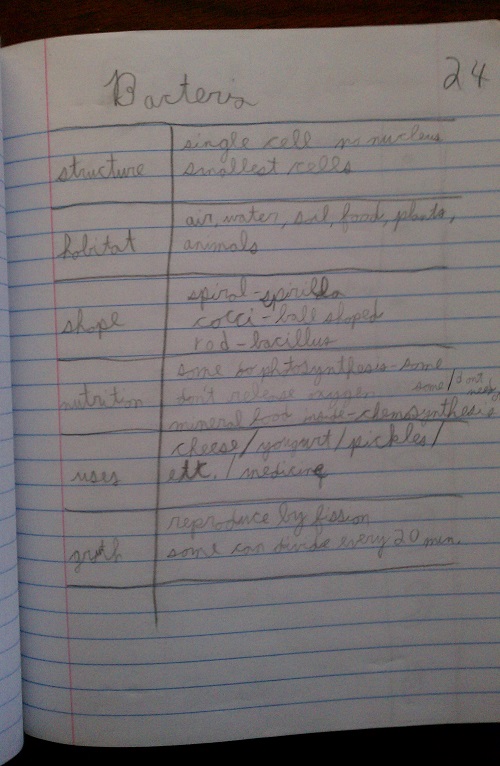 24
Bacteria
single cell no nucleus
structure smallest cells
air, water, soil, food, plants,
habitat animals
spiral - spirilla
shape cocci - ball shaped
rod - bacillus
some do photosynthesis - some
nutrition don't release oxygen some/don't
mineral food inside - chemosynthesis
cheese/yogurt/pickles/
uses etc. / medicine
reproduce by fission
groth some can divide every 20 min.